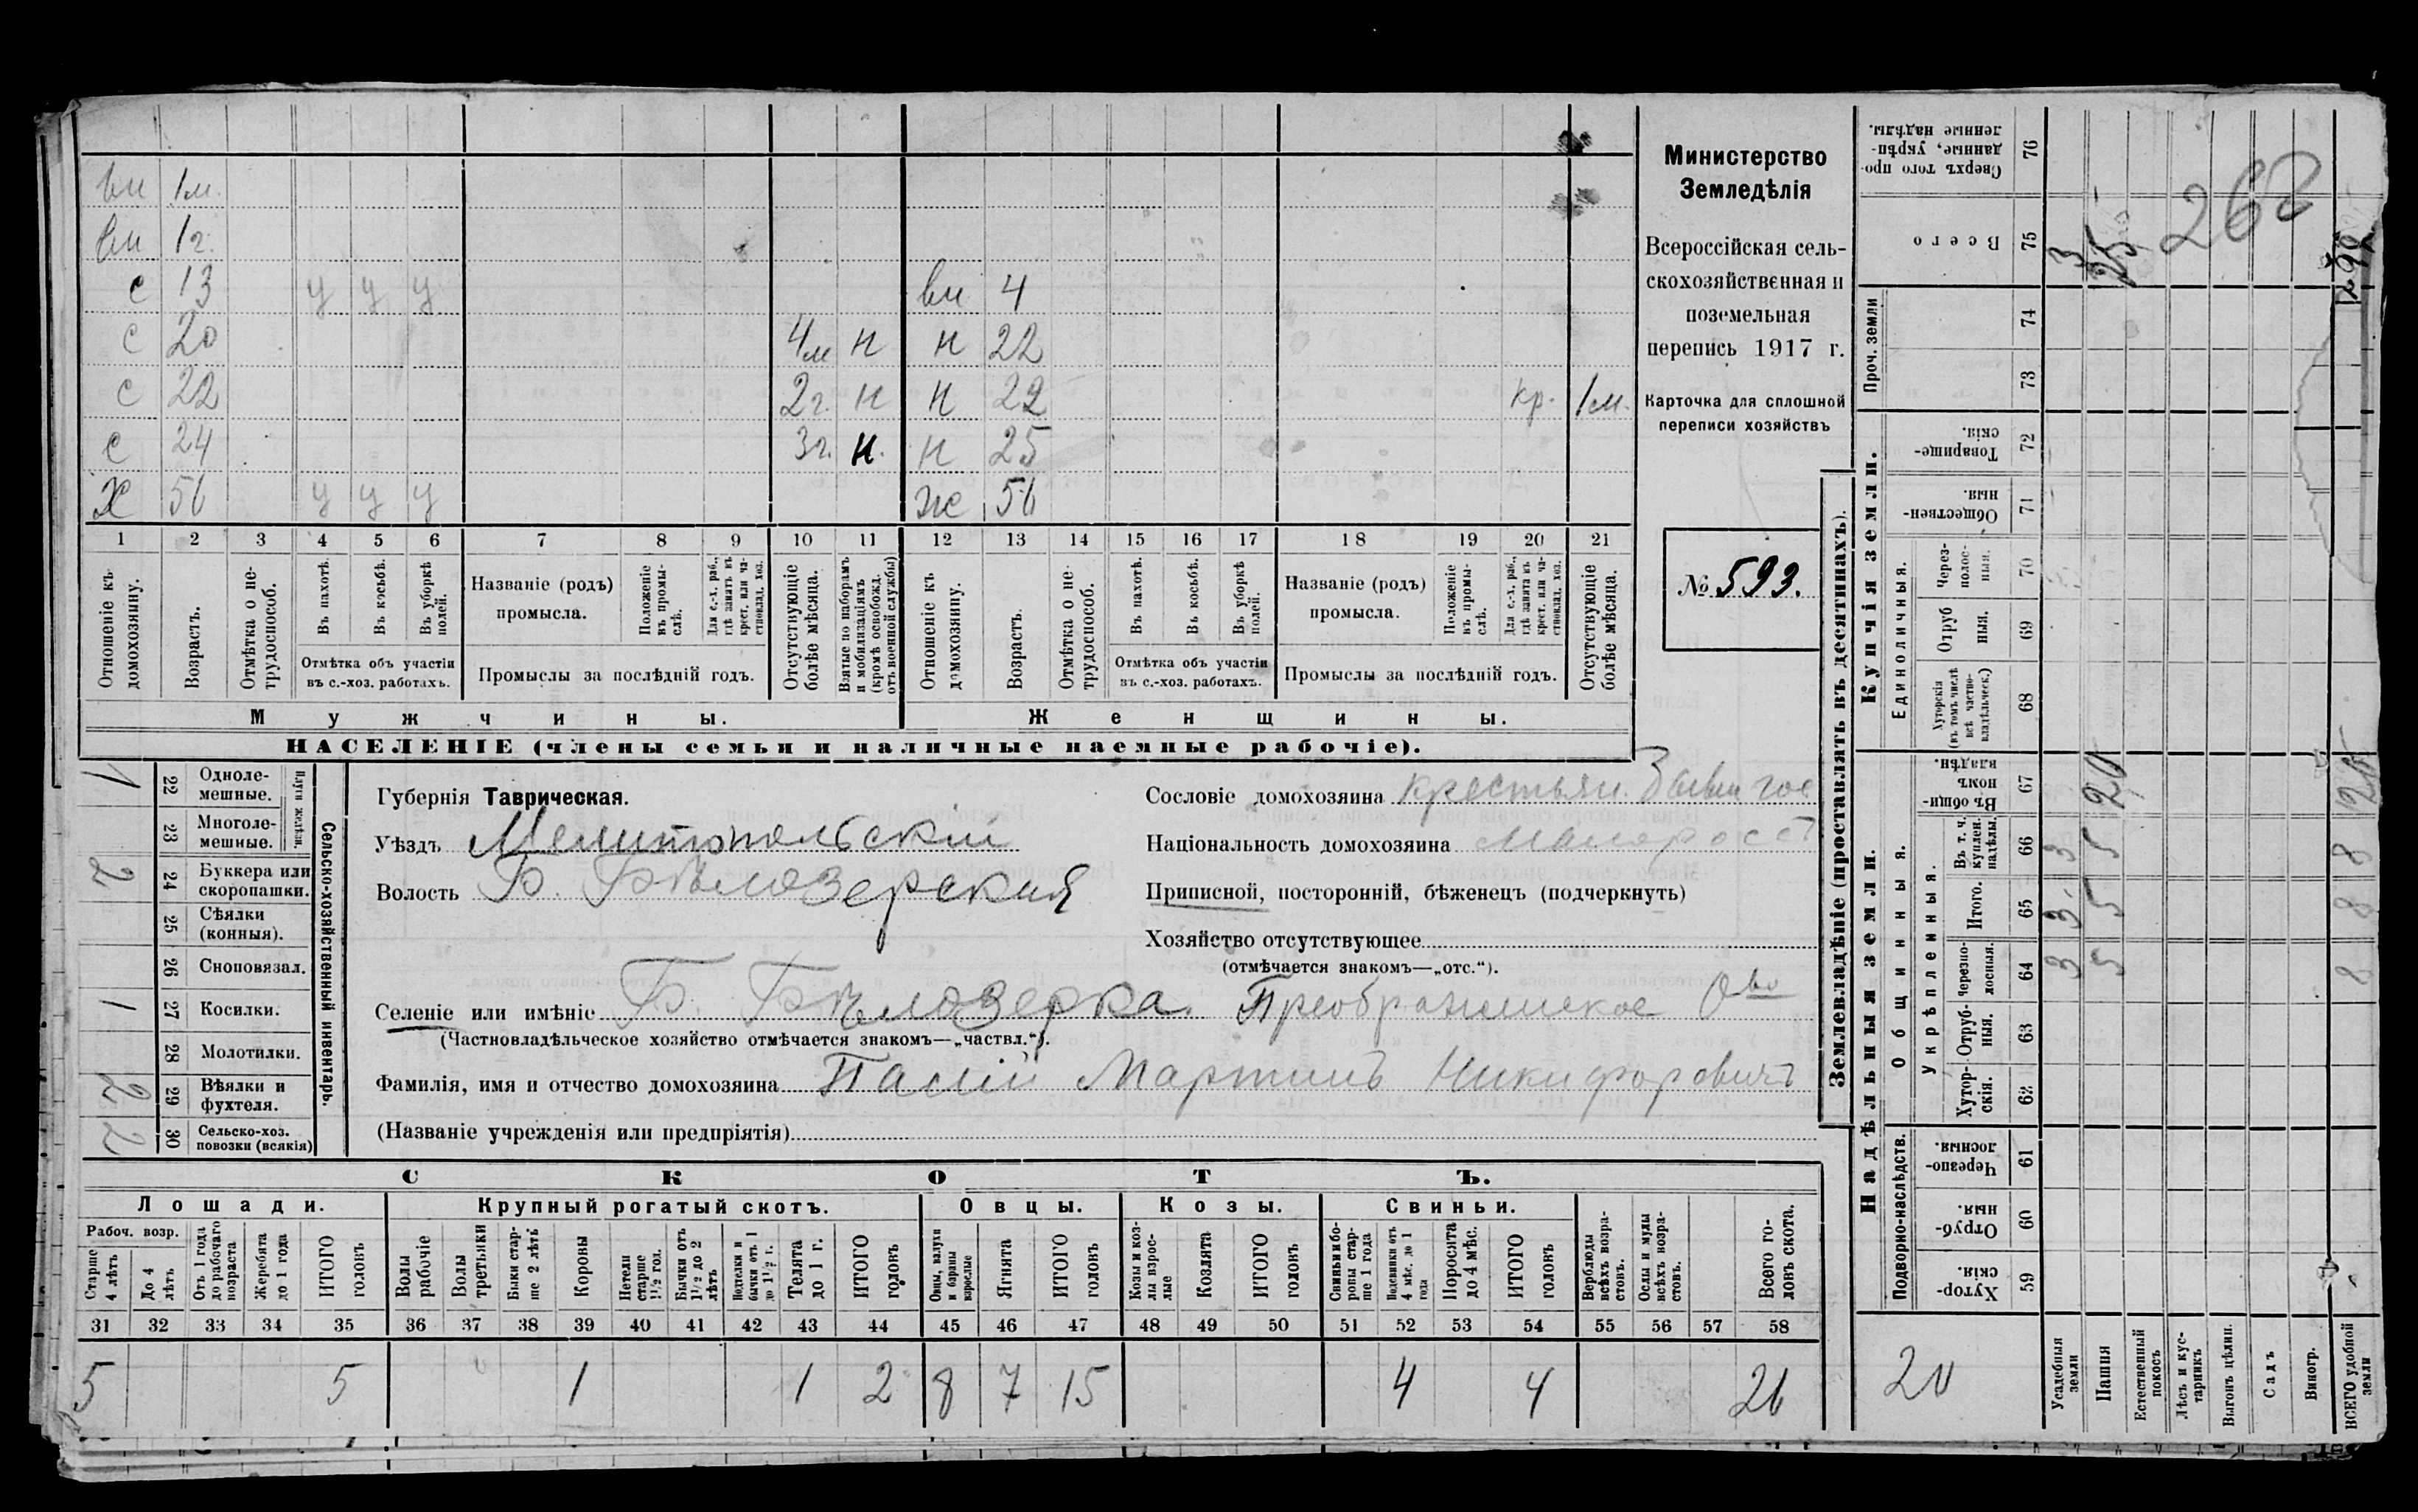 вн 1м.
вн 1г.
с 13 у у у вн 4
с 20 4м н н 22
с 22 2г. н н 22 кр. 1м.
с 24 3г. н. н 25
х 56 у у у ж 56
1 2 3 4 5 6 7 8 9 10 11 12 13 14 15 16 17 18 19 20 21
Отношеніе къ домохозяину.
Возрастъ.
Отмѣтка о не-трудоспособ.
Въ пахотѣ.
Въ косьбѣ.
Въ уборкѣ полей.
Отмѣтка объ участіи
въ с.-хоз. работахъ.
Названіе (родъ)
промысла.
Положеніе въ промы-слѣ.
Для с.-х. раб., гдѣ занятъ въ крест. или ча-стновлад. хоз.
Промыслы за послѣдній годъ.
Отсутствующіе болѣе мѣсяца.
Взятые по наборамъ и мобилизаціямъ (кромѣ освобожд. отъ военной службы)
Отношеніе къ домохозяину.
Возрастъ.
Отмѣтка о не-трудоспособ.
Въ пахотѣ.
Въ косьбѣ.
Въ уборкѣ полей.
Отмѣтка объ участіи
въ с.-хоз. работахъ.
Названіе (родъ)
промысла.
Положеніе въ промы-слѣ.
Для с.-х. раб., гдѣ занятъ въ крест. или ча-стновлад. хоз.
Промыслы за послѣдній годъ.
Отсутствующіе болѣе мѣсяца.
Мужчины.
Женщины.
НАСЕЛЕНІЕ (члены семьи и наличные наемные рабочіе).
Министерство
Земледѣлія
Всероссійская сель-
скохозяйственная и
поземельная
перепись 1917 г.
Карточка для сплошной
переписи хозяйствъ
№ 593.
Сельско-хозяйственный инвентарь.
Плуги желѣзн.
1 22 Одноле-мешные.
23 Многоле-мешные.
2 24 Буккера или скоропашки.
25 Сѣялки (конныя).
26 Сноповязал.
1 27 Косилки.
28 Молотилки.
2 29 Вѣялки и фухтеля.
2 30 Сельско-хоз. повозки (всякія)
Губернія Таврическая.
Уѣздъ Мелитопольскій
Волость Б. Бѣлозерская
Сословіе домохозяина крестьян. бывш гос
Національность домохозяина малоросс
Приписной, посторонній, бѣженецъ (подчеркнуть)
Хозяйство отсутствующее
(отмѣчается знакомъ—„отс.“).
Селеніе или имѣніе Б. Бѣлозерка. Преображенское Ово
(Частновладѣльческое хозяйство отмѣчается знакомъ—„частвл.“).
Фамилія, имя и отчество домохозяина Палій Мартинъ Никифоровичъ
(Названіе учрежденія или предпріятія)
СКОТЪ.
Лошади.
Крупный рогатый скотъ.
Овцы.
Козы.
Свиньи.
Рабоч. возр.
Старше 4 лѣтъ
До 4 лѣтъ
Отъ 1 года до рабочаго возраста
Жеребята до 1 года
ИТОГО головъ
Волы рабочіе
Волы третьяки
Быки стар-ше 2 лѣтъ
Коровы
Нетели старше 1½ год.
Бычки отъ 1½ до 2 лѣтъ
Нетелки и бычки отъ 1 до 1½ г.
Телята до 1 г.
ИТОГО головъ
Овцы, валухи и бараны взрослые
Ягнята
ИТОГО головъ
Козы и коз-лы взрос-лые
Козлята
ИТОГО головъ
Свиньи и бо-ровы стар-ше 1 года
Подсвинки отъ 4 мѣс. до 1 года
Поросята до 4 мѣс.
ИТОГО головъ
Верблюды всѣхъ возра-стовъ.
Ослы и мулы всѣхъ возра-стовъ.
Всего го-ловъ скота.
31 32 33 34 35 36 37 38 39 40 41 42 43 44 45 46 47 48 49 50 51 52 53 54 55 56 57 58
5 5 1 1 2 8 7 15 4 4 26
Землевладѣніе (проставлять въ десятинахъ).
Сверхъ того про-данные, укрѣп-ленные надѣлы. 76
Всего 75 3 35
262
298
Купчія земли.
Проч. земли
74
73
Товарище-скія. 72
Обществен-ныя. 71
Единоличныя.
Через-полос-ныя. 70
Отруб ныя. 69
Хуторскія (въ томъ числѣ всѣ частно-владѣльческ.) 68
Надѣльныя земли.
Общинныя.
Въ общи-номъ владѣн. 67 20 20
Укрѣпленныя.
Въ т. ч. куплен. надѣлы. 66 3 5 8
Итого. 65 3 5 8
Черезпо-лосныя. 64 3 5 8
Отруб-ныя. 63
Хутор-скія. 62
Подворно-наслѣдств.
Черезпо-лосныя. 61
Отруб-ныя. 60
Хутор-скія. 59
20
Усадебныя земли
Пашня
Естественный покосъ
Лѣсъ и кус-тарникъ
Выгонъ цѣлин.
Садъ
Виногр.
ВСЕГО удобной земли